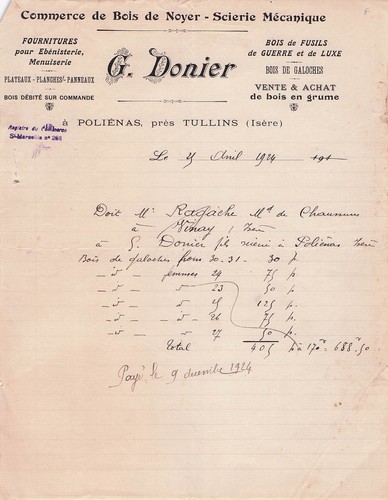 Commerce de Bois de Noyer - Scierie Mécanique
FOURNITURES
pour Ebénisterie,
Menuiserie
PLATEAUX - PLANCHES - PANNEAUX
BOIS DÉBITÉ SUR COMMANDE
G. Donier
BOIS de FUSILS
de GUERRE et de LUXE
BOIS DE GALOCHES
VENTE & ACHAT
de bois en grume
à POLIÉNAS, près TULLINS (Isère)
Registre du Commerce
St-Marcellin n° 268
Le 25 Avril 1924
Doit Mr Ragache Md de Chaussures
à Vinay, Isère
à G. Donier fils scierie à Poliénas Isère
Bois de galoches 30-31- 30 p.
- d° - femmes 24 75 p.
- d° - 23 50 p.
- d° - 25 125 p.
- d° - 26 75 p.
- d° - 27 50 p.
Total 405 p à 170 = 688.50
Payé le 9 decembre 1924